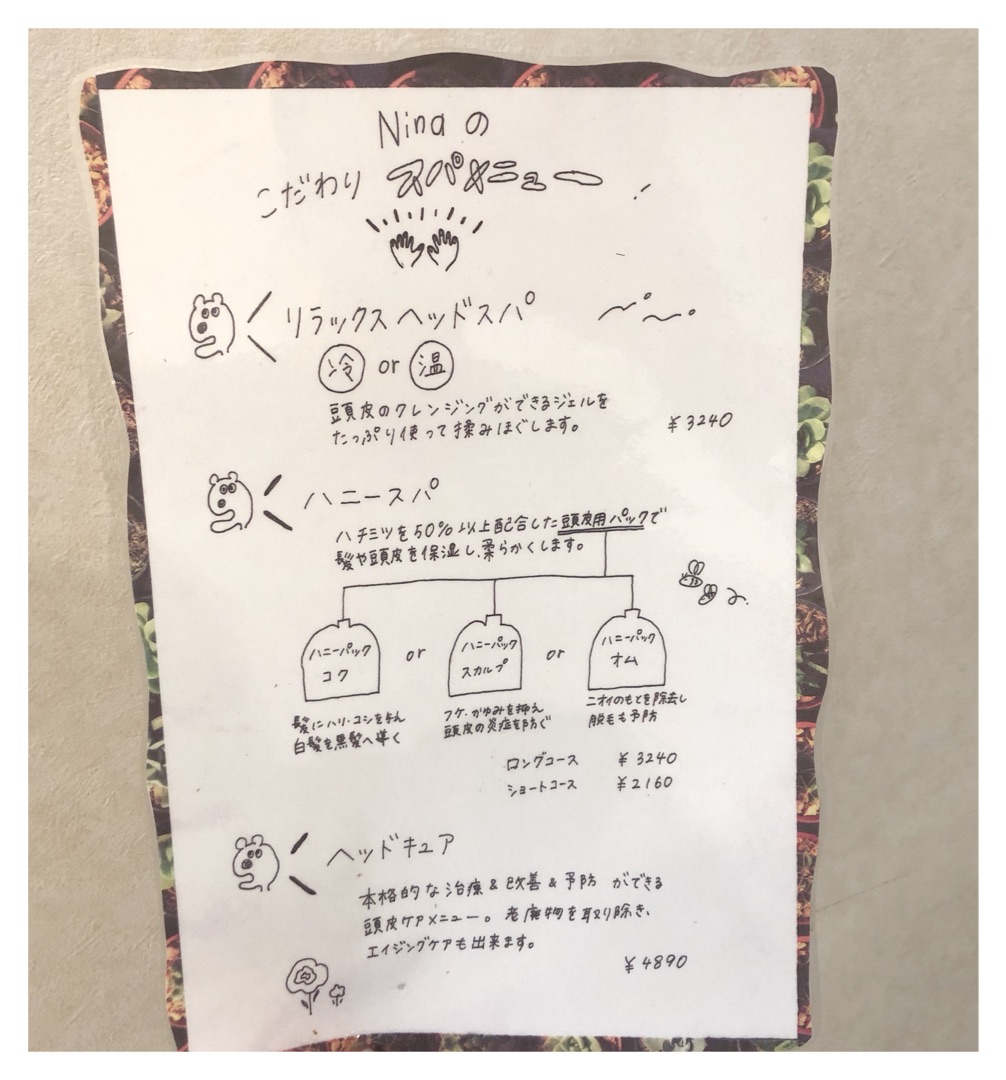 Ninaの
こだわり スパメニュー
リラックスヘッドスパ
冷 or 温
頭皮のクレンジングができるジェルを
たっぷり使って揉みほぐします。
¥3240
ハニースパ
ハチミツを50%以上配合した頭皮用パックで
髪や頭皮を保湿し、柔らかくします。
ハニーパック
コク
or
ハニーパック
スカルプ
or
ハニーパック
オム
髪にハリ・コシを与え
白髪を黒髪へ導く
フケ・かゆみを抑え
頭皮の炎症を防ぐ
ニオイのもとを除去し
脱毛も予防
ロングコース ¥3240
ショートコース ¥2160
ヘッドキュア
本格的な治療&改善&予防 ができる
頭皮ケアメニュー。老廃物を取り除き、
エイジングケアも出来ます。
¥4890